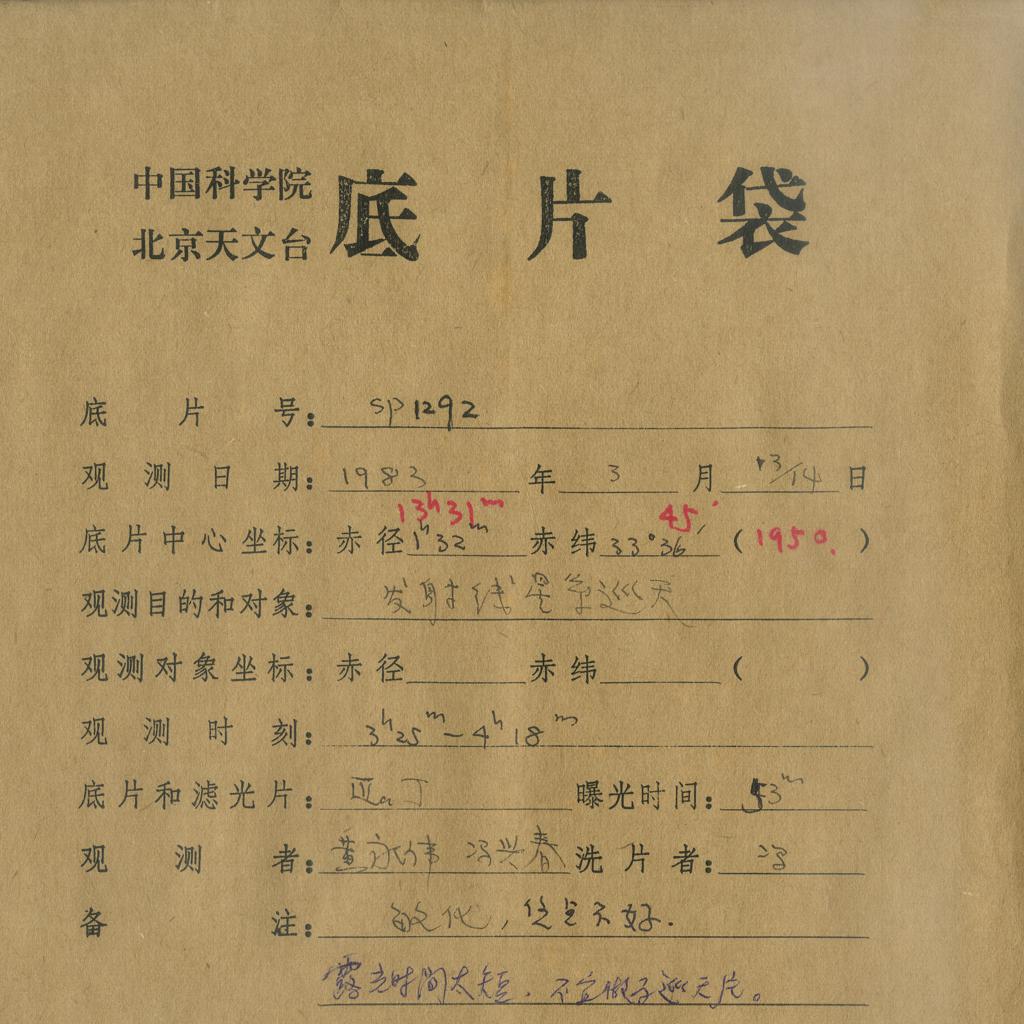 中国科学院
北京天文台
底片袋
底片号： SP1292
观测日期： 1983 年 3 月 13/14 日
13ʰ31ᵐ 45′
底片中心坐标：赤径 1ʰ32ᵐ 赤纬 33°36′ （1950.）
观测目的和对象： 发射线星系巡天
观测对象坐标：赤径 赤纬 （ ）
观测时刻： 3ʰ25ᵐ—4ʰ18ᵐ
底片和滤光片： Ⅲa J 曝光时间： 53ᵐ
观测者： 黄永伟 冯兴春 洗片者： 冯
备注： 敏化，天好.
露光时间太短. 不宜做巡天片。